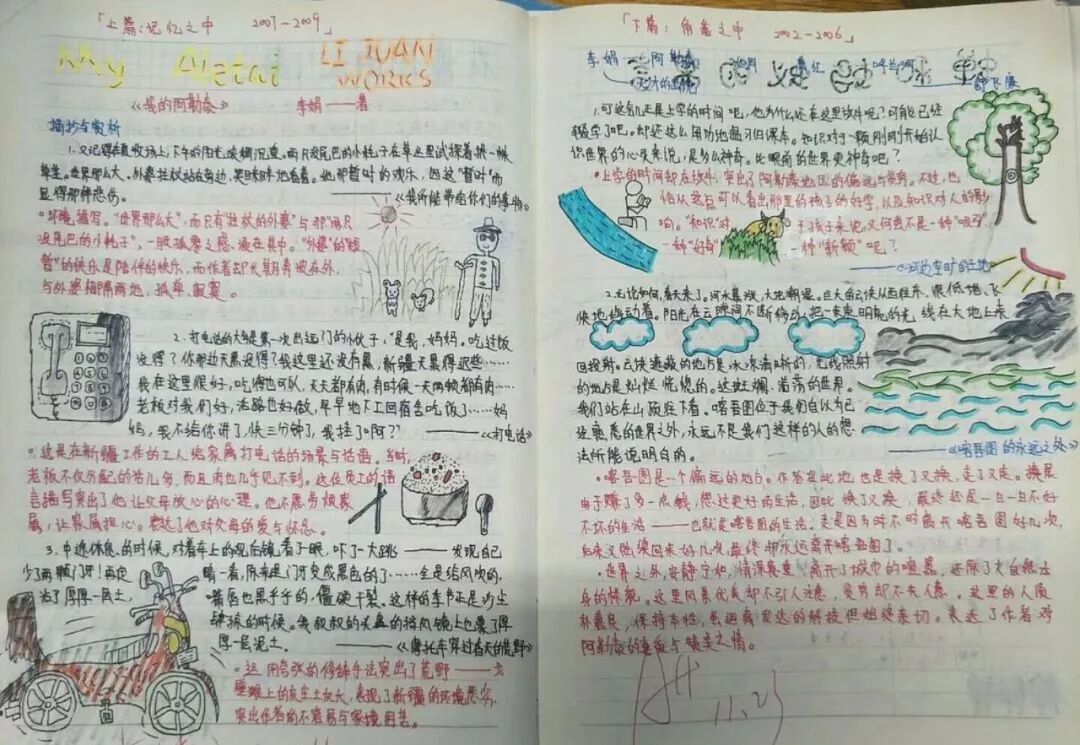 「上篇:记忆之中 2007-2009」
My Aletai LI JUAN
WORKS
《我的阿勒泰》 李娟——著
摘抄与赏析
1.又记得在夏牧场上,下午的阳光浓稠沉重。两只没尾巴的小耗子在草丛里试探着拱一株
草茎。世界那么大。外婆拄杖站在旁边,笑眯眯地看着。她那暂时的欢乐,因这"暂时"而
显得那样悲伤。 ——《我所能带给你们的事物》
环境描写。"世界那么大",而只有拄杖的外婆"与那"两只
没尾巴的小耗子",一股孤寂之感,漫在其中。"外婆"的"短
暂"的快乐是陪伴的快乐,而作者却长期奔波在外,
与外婆相隔两地,孤单、寂寞。
2.打电话的大多是第一次出远门的小伙子,"是我,妈妈。吃过饭
没得?你那边天黑没得?我这里还没有黑,新疆天黑得迟些……
我在这里很好,吃得也可以,天天都有肉,有时候一天两顿都有肉……
老板对我们好,活路也好做,早早地下工回宿舍吃饭了……妈
妈,我不给你讲了,快三分钟了,我挂了啊?" ——《打电话》
这是在新疆工作的工人给家属打电话的场景与话语。当时,
老板不仅分配的活儿多,而且肉也几乎见不到。这位员工的语
言描写突出了他让父母放心的心理。他不愿劳烦家
属,让家属担心。表达了他对父母的爱与怀念。
3.中途休息的时候,对着车上的观后镜看了一眼,吓了一大跳——发现自己
少了两颗门牙!再定睛一看,原来是门牙变成黑色的了……全是给风吹的,
糊了厚厚一层土,嘴唇也黑乎乎的,僵硬干裂。这样的季节正是沙尘
肆掠的时候。我叔叔的头盔的挡风镜上也蒙了厚
厚一层泥土。 ——《摩托车穿过春天的荒野》
运用夸张的修辞手法突出了荒野——戈
壁滩上的灰尘土灰大,表现了新疆的环境恶劣,
突出作者的不容易与家境困苦。
「下篇:角落之中 2002-2006」
李娟——阿勒泰
1.可这会儿正是上学的时间呢,他为什么还在这里放牛呢?可能已经
辍学了吧。却还这么用功地温习旧课本。知识对于一颗刚刚开始认
识世界的心灵来说,是多么神奇。比眼前的世界更神奇吧?
上学的时间却在放牛,突出了阿勒泰地区的偏远与贫穷。不过,也
恰从这后可以看出那里的孩子的好学,以及知识对人的影
响。"知识"对于孩子来说,又何尝不是一种"吸引"
一种"好奇"一种"新颖"呢?
——《河边空旷的土地》
2.无论如何,春天来了。河水暴涨,大地潮湿。巨大的云块从西往东,很低地、飞
快地移动着。阳光在云隙间不断移动,把一束束明亮的光线在大地上来
回投射。云块遮蔽的地方是冰凉清晰的,光线照射
的地方是灿烂恍惚的。这斑斓、浩荡的世界。
我们站在山顶往下看。喀吾图位于我们自以为已
经熟悉的世界之外,永远不是我们这样的人的想
法所能说明白的。 ——《喀吾图的永远之处》
喀吾图是一个偏远的地方。作者在此地也是换了又换,走了又走。换是
由于赚了多一点钱,想过更好的生活,因此换了又换,最终还是一日一日不好
不坏的生活——也就是喀吾图的生活。走是因为时不时离开喀吾图好几次,
后来又陆续回来好几次,最终却永远离开喀吾图了。
世界之外,安静宁和,情深意重,离开了城市的喧嚣,还原了大自然本
身的样貌。这里风景优美却不引人注意,贫穷却不失人意。这里的人质
朴善良,保持本性,表达了作者对
阿勒泰的喜爱与赞美之情。
A+
11.25